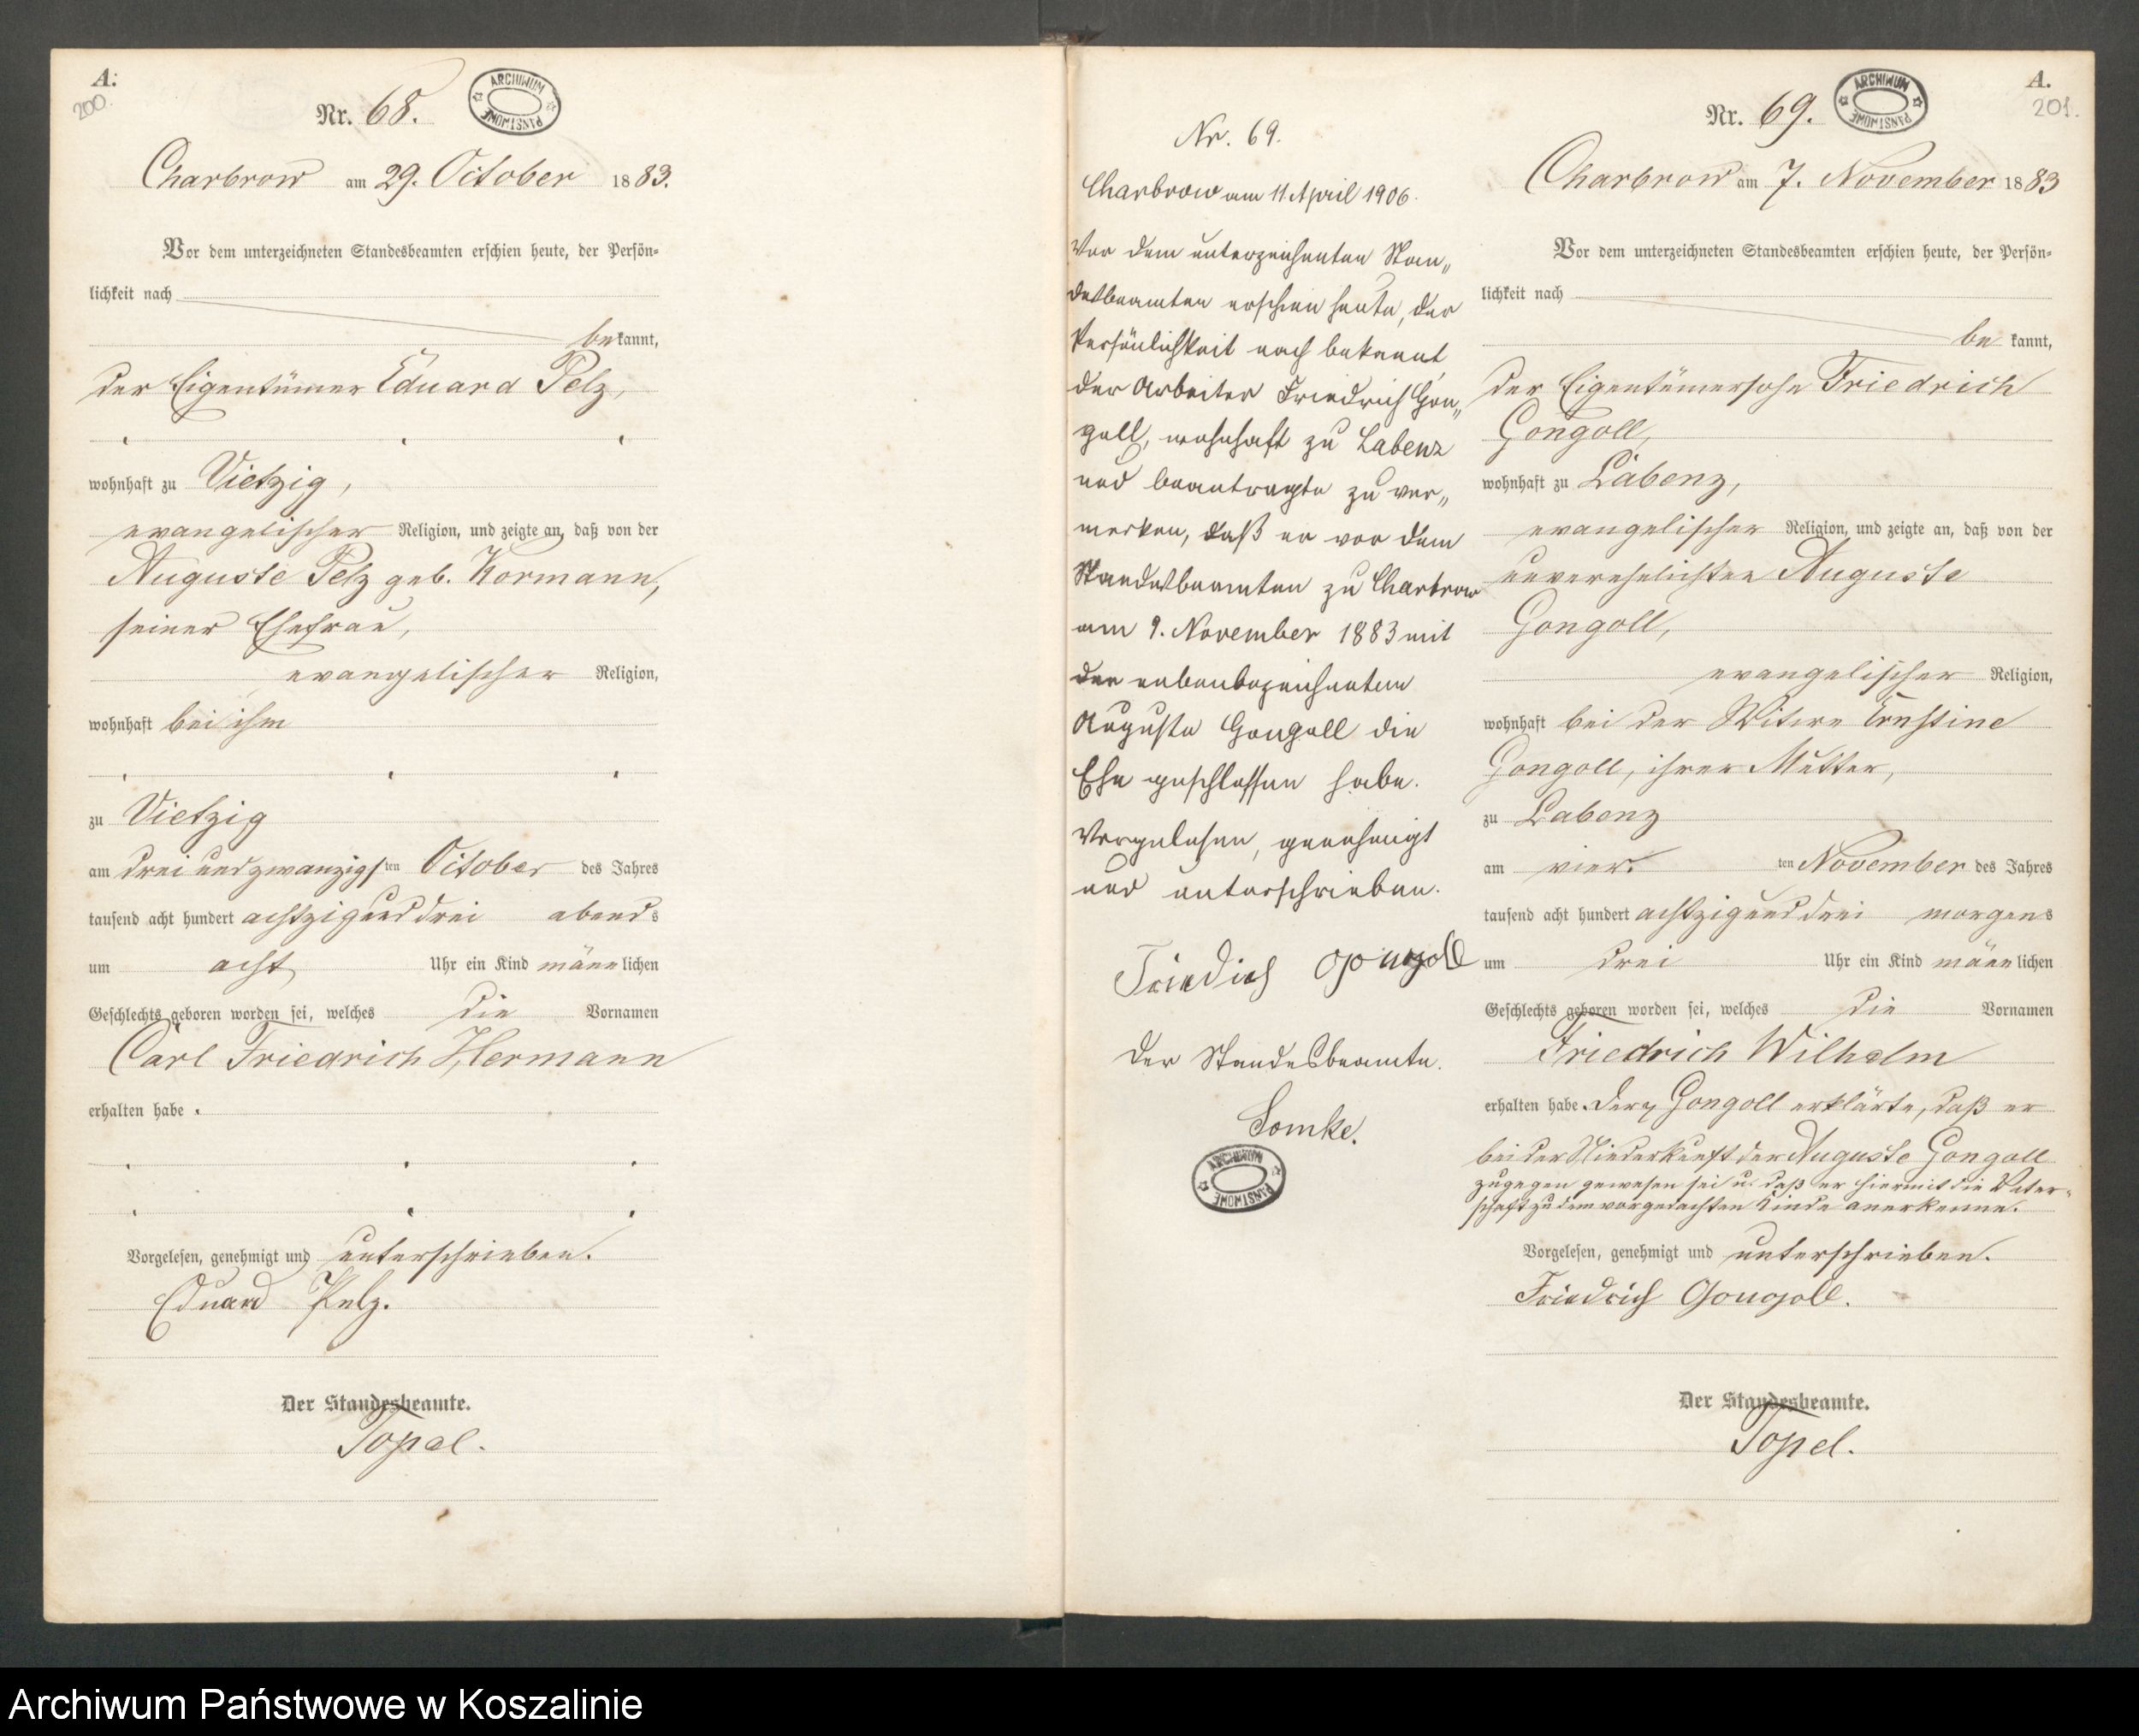 A.
200.
Nr. 68.
ARCHIWUM PAŃSTWOWE
Charbrow am 29. October 1883.
Vor dem unterzeichneten Standesbeamten erschien heute, der Persön-
lichkeit nach
bekannt,
der Eigentümer Eduard Pelz,
wohnhaft zu Vietzig,
evangelischer Religion, und zeigte an, daß von der
Auguste Pelz geb. Kormann,
seiner Ehefrau,
evangelischer Religion,
wohnhaft bei ihm
zu Vietzig
am drei und zwanzigsten October des Jahres
tausend acht hundert achtzig und drei abends
um acht Uhr ein Kind männlichen
Geschlechts geboren worden sei, welches die Vornamen
Carl Friedrich Hermann
erhalten habe.
Vorgelesen, genehmigt und unterschrieben.
Eduard Pelz.
Der Standesbeamte.
Topel.
Nr. 69.
Charbrow am 11 April 1906.
Vor dem unterzeichneten Stan„
desbeamten erschien heute, der
Persönlichkeit nach bekannt,
der Arbeiter Friedrich Gon„
goll, wohnhaft zu Labenz
und beantragte zu ver„
merken, daß er vor dem
Standesbeamten zu Charbrow
am 9. November 1883 mit
der nebenbezeichneten
Auguste Gongoll die
Ehe geschlossen habe.
Vorgelesen, genehmigt
und unterschrieben.
Friedrich Gongoll
Der Standesbeamte.
Lomke.
ARCHIWUM PAŃSTWOWE
A.
201.
Nr. 69.
ARCHIWUM PAŃSTWOWE
Charbrow am 7. November 1883
Vor dem unterzeichneten Standesbeamten erschien heute, der Persön-
lichkeit nach
bekannt,
der Eigentümersohn Friedrich
Gongoll,
wohnhaft zu Labenz,
evangelischer Religion, und zeigte an, daß von der
unverehelichten Auguste
Gongoll,
evangelischer Religion,
wohnhaft bei der Witwe Ernstine
Gongoll, ihrer Mutter,
zu Labenz
am vier.ten November des Jahres
tausend acht hundert achtzig und drei morgens
um drei Uhr ein Kind männlichen
Geschlechts geboren worden sei, welches die Vornamen
Friedrich Wilhelm
erhalten habe. Der Gongoll erklärte, daß er
bei der Niederkunft der Auguste Gongoll
zugegen gewesen sei u. daß er hiermit die Vater-
schaft zu dem vorgedachten Kinde anerkenne.
Vorgelesen, genehmigt und unterschrieben.
Friedrich Gongoll.
Der Standesbeamte.
Topel.
Archiwum Państwowe w Koszalinie